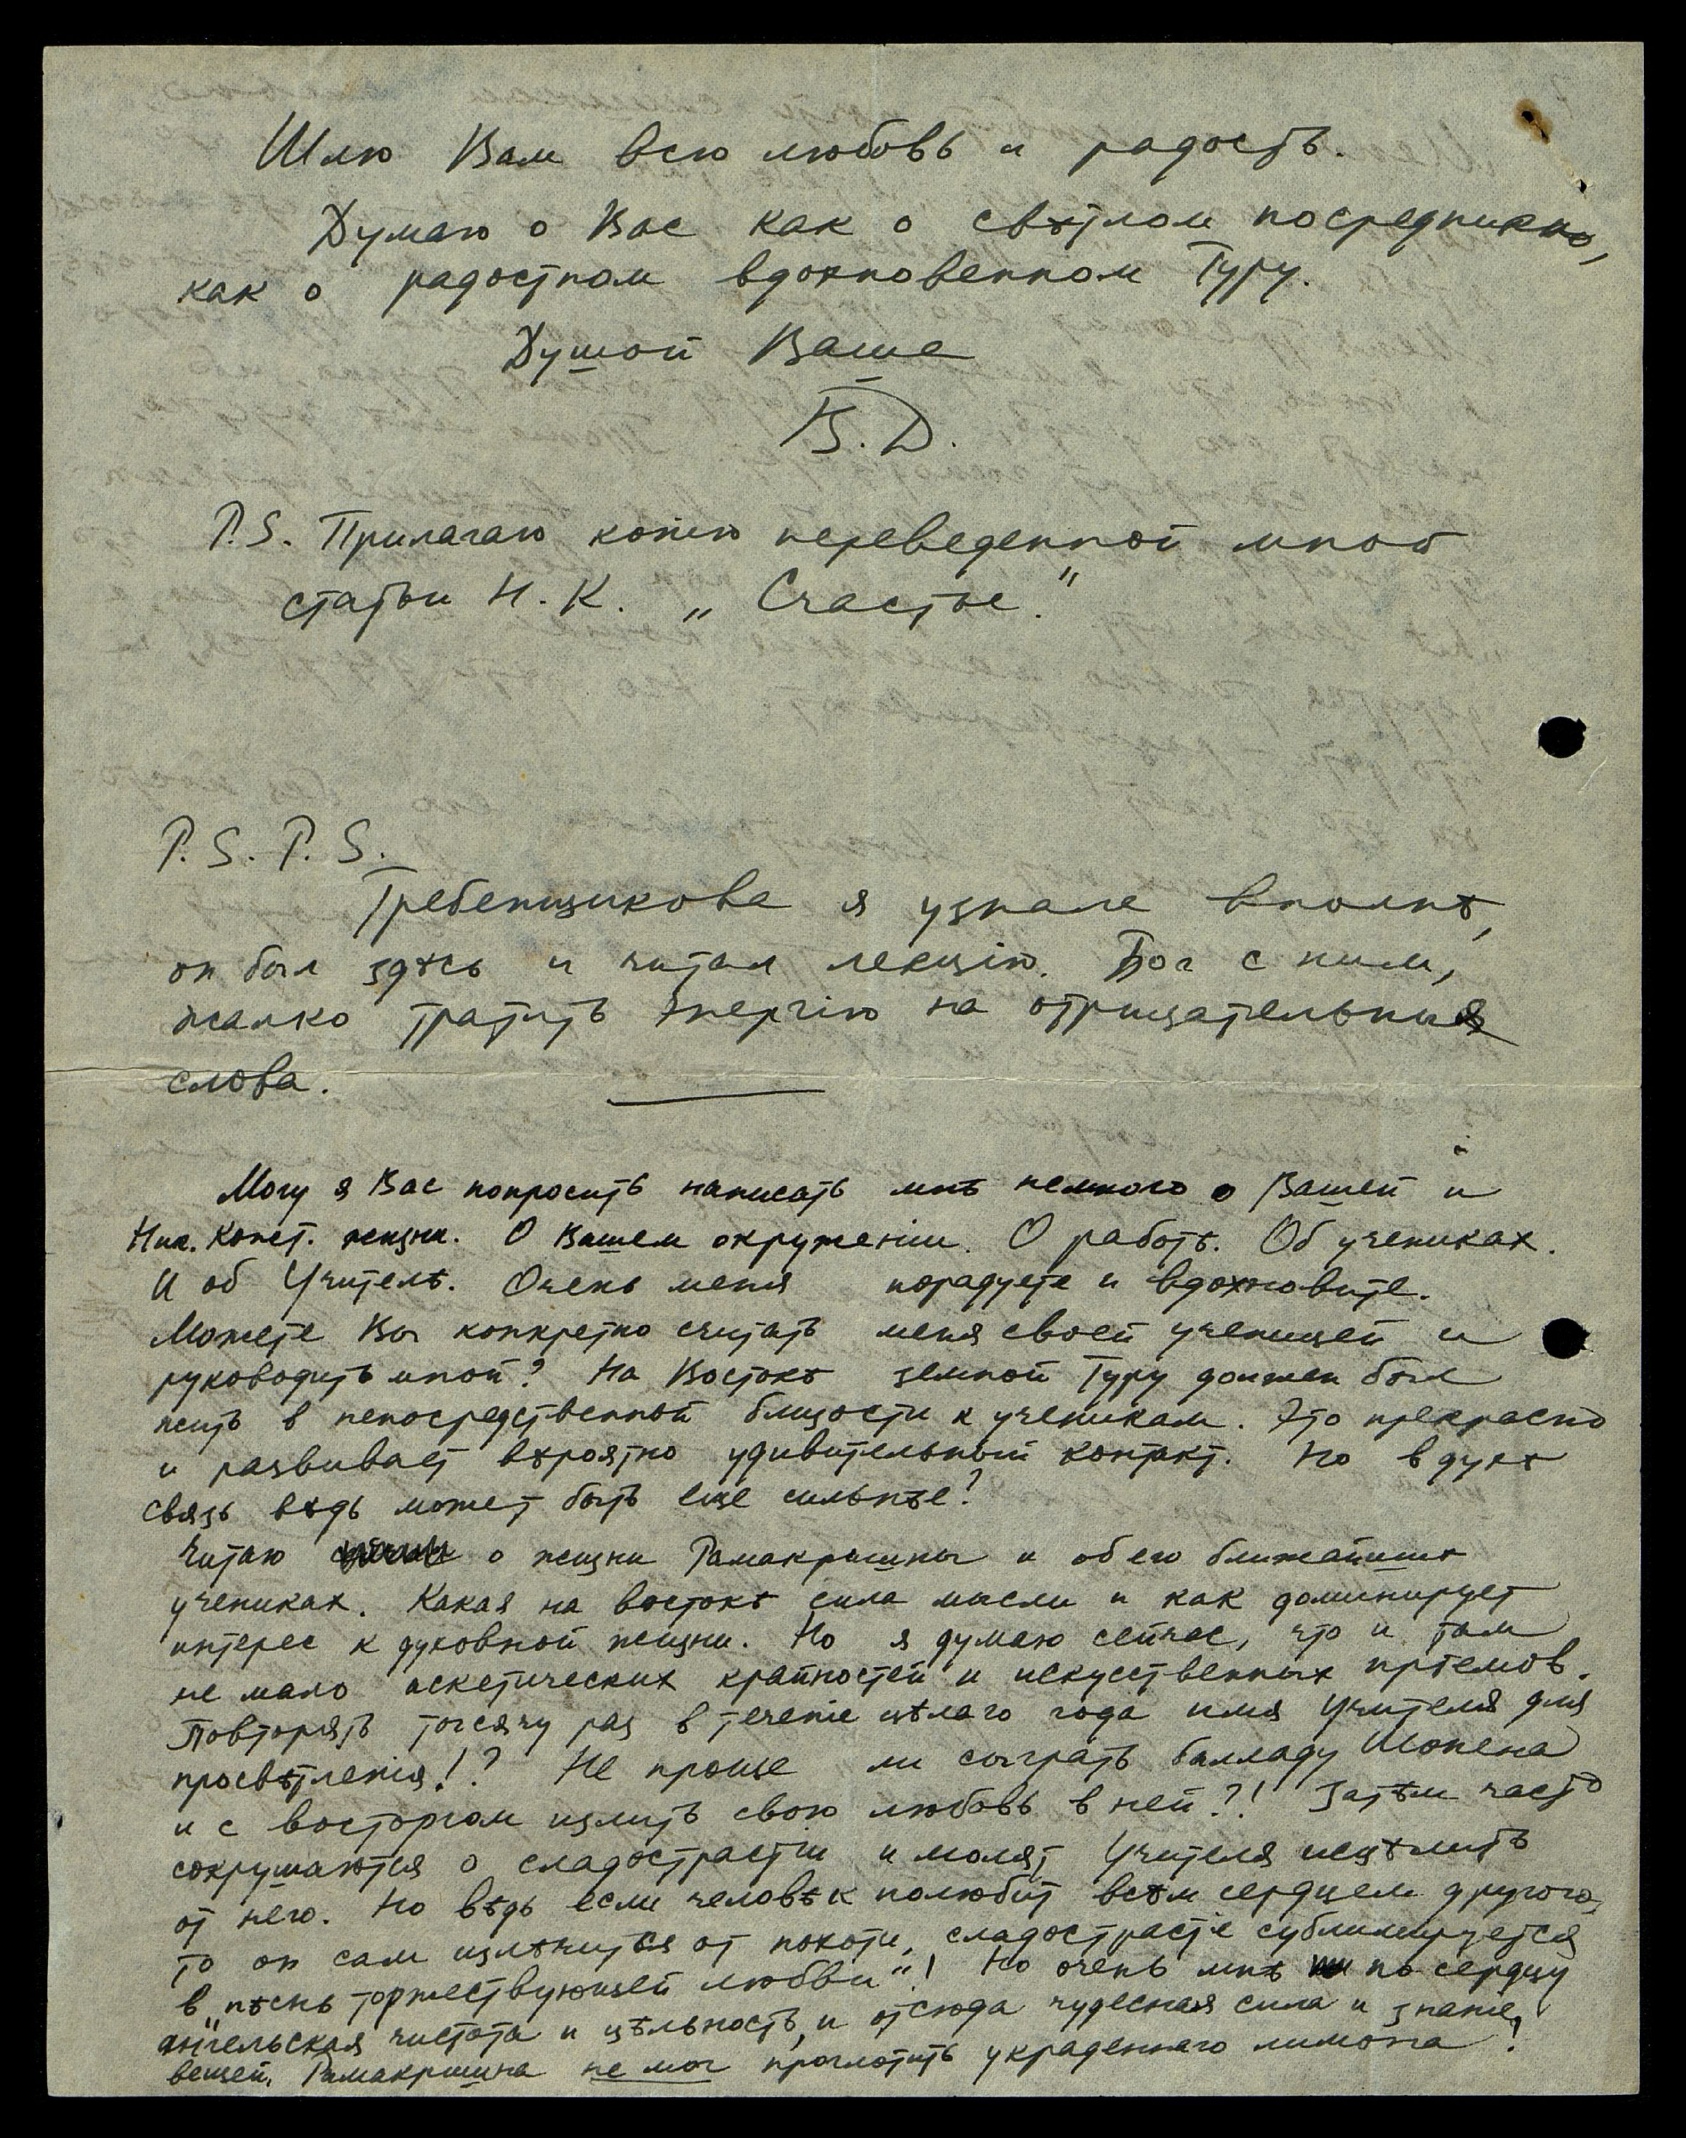 Шлю Вам всю любовь и радость.
Думаю о Вас как о свѣтлом посредникѣ,
как о радостном вдохновенном Гуру.
Душой Ваша
В.Д.
P.S. Прилагаю копию переведенной мною
статьи Н.К. „Счастье."
P.S. P.S.
Гребенщикова я узнала вполнѣ,
он был здѣсь и читал лекцію. Бог с ним,
жалко тратить энергію на отрицательныя
слова.
Могу я Вас попросить написать мнѣ немного о Вашей и
Ник. Конст. жизни. О Вашем окруженіи. О работѣ. Об учениках.
И об Учителѣ. Очень меня порадуете и вдохновите.
Можете Вы конкретно считать меня своей ученицей и
руководить мной? На Востокѣ земной Гуру должен был
жить в непосредственной близости к ученикам. Это прекрасно
и развивает вѣроятно удивительный контакт. Но в духѣ
связь вѣдь может быть еще сильнѣе?
Читаю о жизни Рамакришны и об его ближайших
учениках. Какая на востокѣ сила мысли и как доминирует
интерес к духовной жизни. Но я думаю сейчас, что и там
не мало аскетических крайностей и искуственных пріемов.
Повторять тысячу раз в теченіе цѣлаго года имя Учителя для
просвѣтленія!? Не проще ли сыграть балладу Шопена
и с восторгом излить свою любовь в ней?! Затѣм часто
сокрушаются о сладострастіи и молят Учителя исцѣлить
от него. Но вѣдь если человѣк полюбит всѣм сердцем другого,
то он сам излѣчится от похоти, сладострастіе сублимируется
в „пѣснь торжествующей любви"! Но очень мнѣ по сердцу
ангельская чистота и цѣльность, и отсюда чудесная сила и знаніе
вещей. Рамакришна не мог проглотить украденнаго лимона!